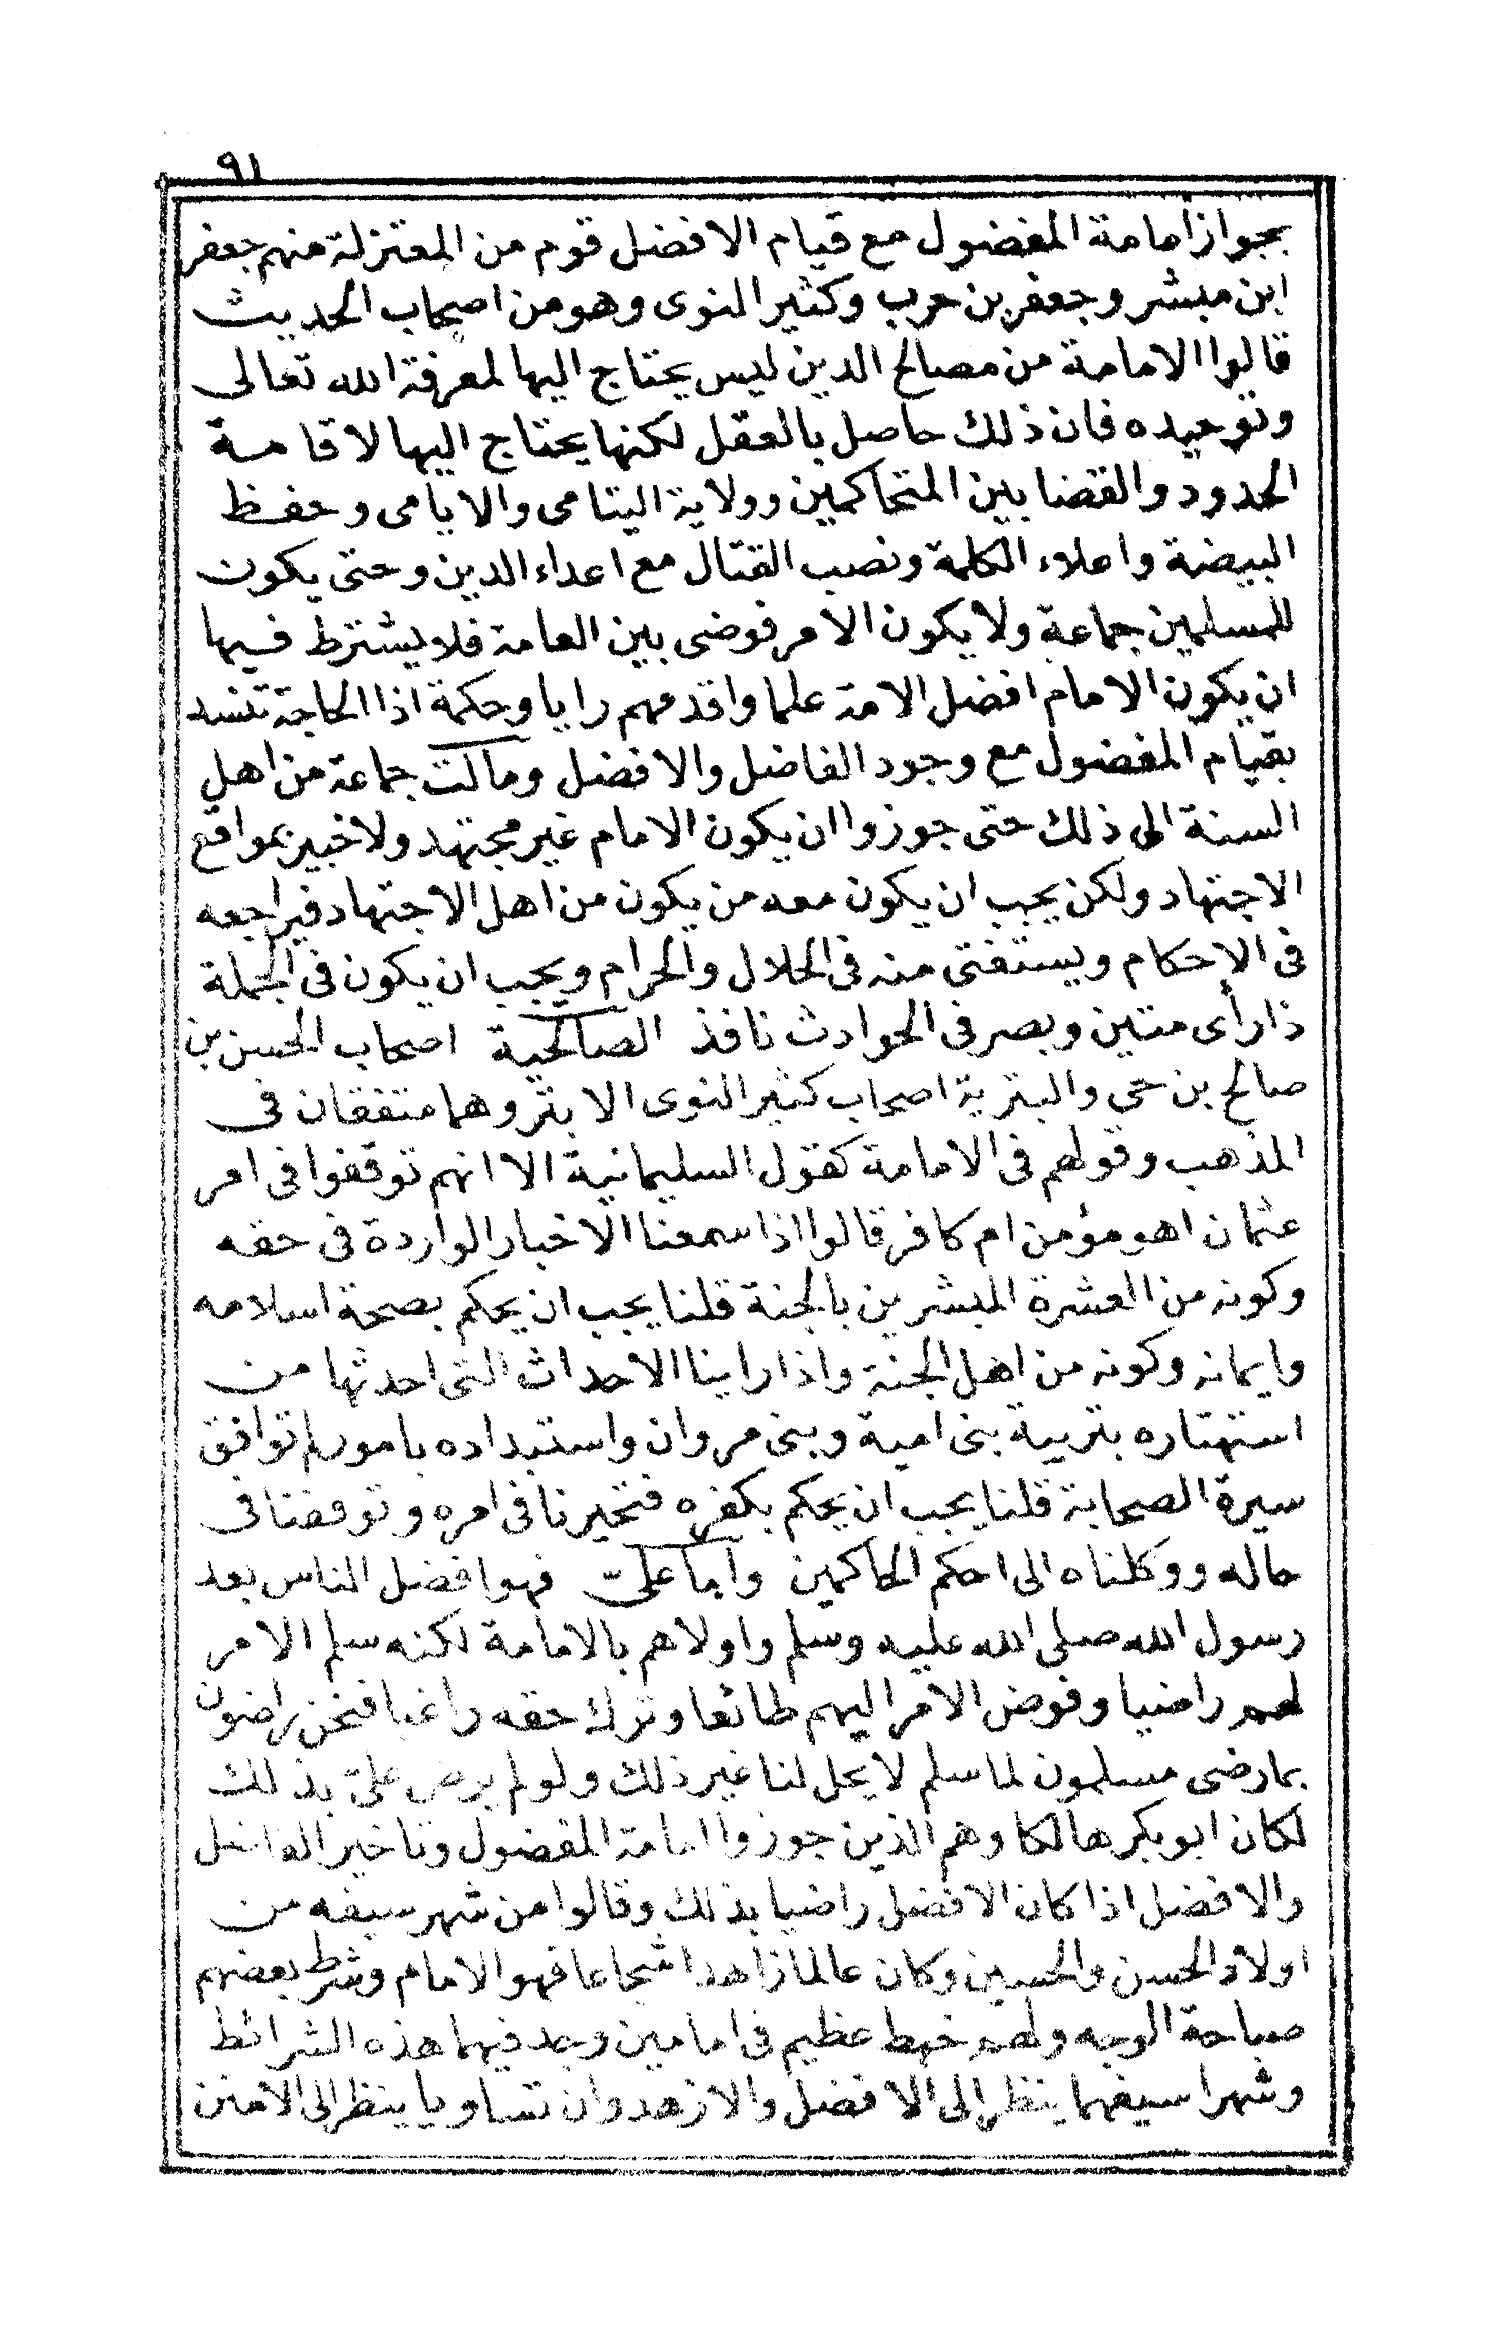 ٩١
بجواز امامة المفضول مع قيام الافضل قوم من المعتزلة منهم جعفر
ابن مبشر وجعفر بن حرب وكثير النوى وهو من اصحاب الحديث
قالوا الامامة من مصالح الدين ليس يحتاج اليها لمعرفة الله تعالى
وتوحيده فان ذلك حاصل بالعقل لكنها يحتاج اليها لاقامة
الحدود والقضا بين المتحاكمين وولاية اليتامى والايامى وحفظ
البيضة واعلاء الكلمة ونصب القتال مع اعداء الدين وحتى يكون
للمسلمين جماعة ولا يكون الامر فوضى بين العامة فلا يشترط فيها
ان يكون الامام افضل الامة علما واقدمهم رايا وحكمة اذا الحاجة تنسد
بقيام المفضول مع وجود الفاضل والافضل ومالت جماعة من اهل
السنة الى ذلك حتى جوزوا ان يكون الامام غير مجتهد ولا خبير بمواقع
الاجتهاد ولكن يجب ان يكون معه من يكون من اهل الاجتهاد فيراجعه
فى الاحكام ويستفتى منه فى الحلال والحرام ويجب ان يكون فى الجملة
ذا رأى متين وبصر فى الحوادث نافذ الصالحية اصحاب الحسن بن
صالح بن حي والبترية اصحاب كثير النوى الابتر وهما متفقان فى
المذهب وقولهم فى الامامة كقول السليمانية الا انهم توقفوا فى امر
عثمان اهو مؤمن ام كافر قالوا اذا سمعنا الاخبار الواردة فى حقه
وكونه من العشرة المبشرين بالجنة قلنا يجب ان يحكم بصحة اسلامه
وايمانه وكونه من اهل الجنة واذا راينا الاحداث التى احدثها من
استهتاره بتربية بنى امية وبنى مروان واستبداده بامور لم توافق
سيرة الصحابة قلنا يجب ان يحكم بكفره فتحيرنا فى امره وتوقفنا فى
حاله ووكلناه الى احكم الحاكمين واما على فهو افضل الناس بعد
رسول الله صلى الله عليه وسلم واولاهم بالامامة لكنه سلم الامر
لهم راضيا وفوض الامر اليهم طائعا وترك حقه راغبا فنحن راضون
بما رضى مسلمون لما سلم لا يحل لنا غير ذلك ولو لم يرض على بذلك
لكان ابو بكر هالكا وهم الذين جوزوا امامة المفضول وتاخير الفاضل
والافضل اذا كان الافضل راضيا بذلك وقالوا من شهر سيفه من
اولاد الحسن والحسين وكان عالما زاهدا شجاعا فهو الامام وشرط بعضهم
صباحة الوجه ولهم خبط عظيم فى امامين وجد فيهما هذه الشرائط
وشهرا سيفهما ينظر الى الافضل والازهد وان تساويا ينظر الى الامتن